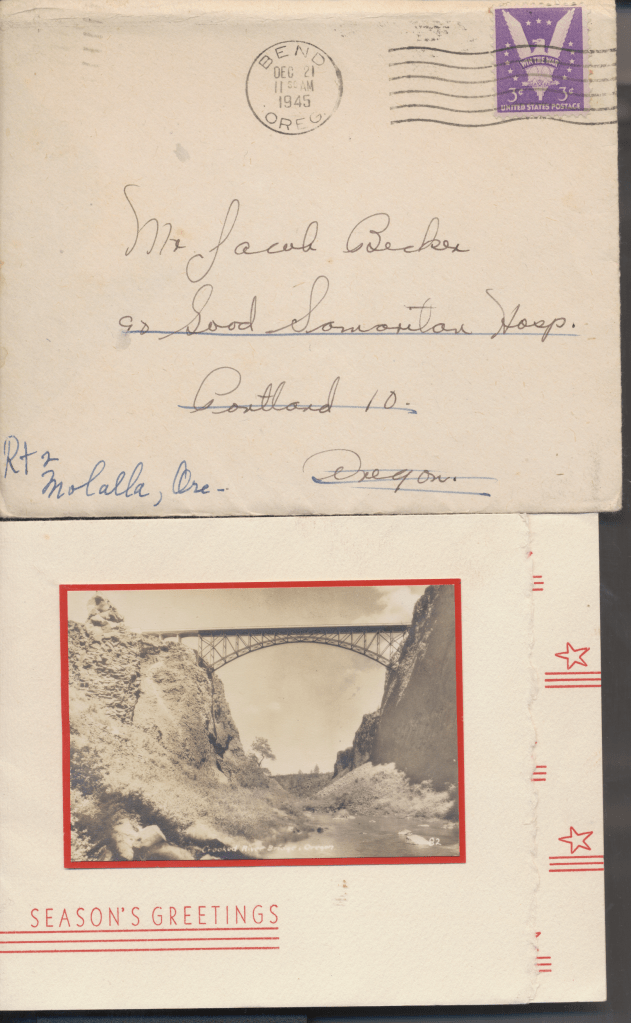 BEND
DEC 21
11 AM
1945
OREG.
WIN THE WAR
3¢ 3¢
UNITED STATES POSTAGE
Mr Jacob Becker
℅ Good Samaritan Hosp.
Portland 10.
Oregon.
Rt 2
Molalla, Ore-
Crooked River Bridge, Oregon
SEASON'S GREETINGS